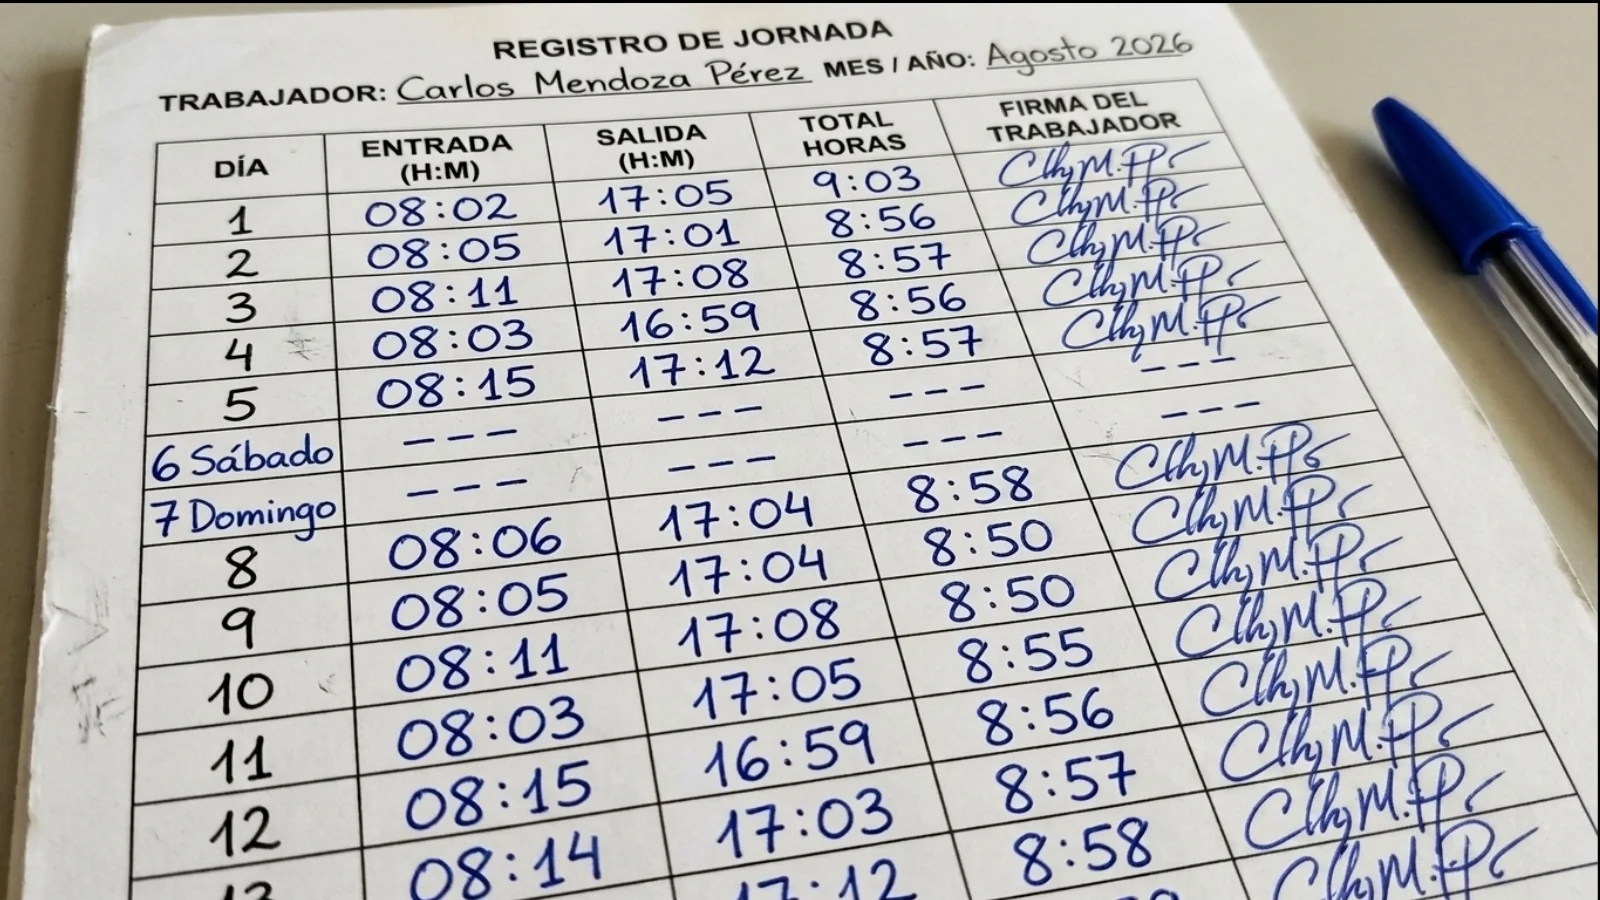 REGISTRO DE JORNADA
TRABAJADOR: Carlos Mendoza Pérez MES / AÑO: Agosto 2026
DÍA ENTRADA (H:M) SALIDA (H:M) TOTAL HORAS FIRMA DEL TRABAJADOR
1 08:02 17:05 9:03
2 08:05 17:01 8:56
3 08:11 17:08 8:57
4 08:03 16:59 8:56
5 08:15 17:12 8:57
6 Sábado --- --- --- ---
7 Domingo --- --- --- ---
8 08:06 17:04 8:58
9 08:05 17:04 8:50
10 08:11 17:08 8:50
11 08:03 17:05 8:55
12 08:15 16:59 8:56
13 08:14 17:03 8:57
17:12 8:58